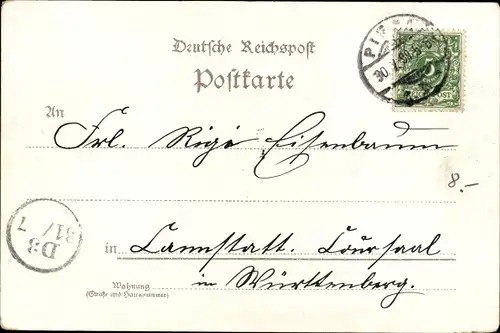 Deutsche Reichspost
Postkarte
An
Frl. Rigi Eisenbaum
8.-
D3
31/7
in Cannstatt. Coursaal
in Württemberg.
Wohnung
(Straße und Hausnummer)